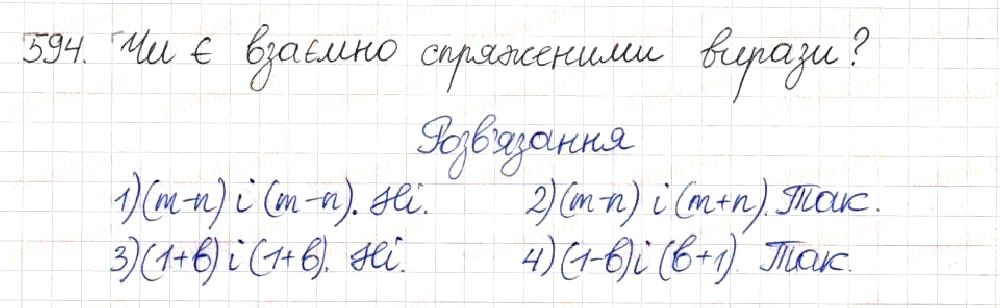 594. Чи є взаємно спряженими вирази?
Розв'язання
1) (m-n) і (m-n). Ні. 2) (m-n) і (m+n). Так.
3) (1+b) і (1+b). Ні. 4) (1-b) і (b+1) Так.